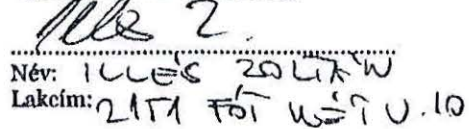 Illés Z.
Név: ILLÉS ZOLTÁN
Lakcím: 2151 FÓT U. 10